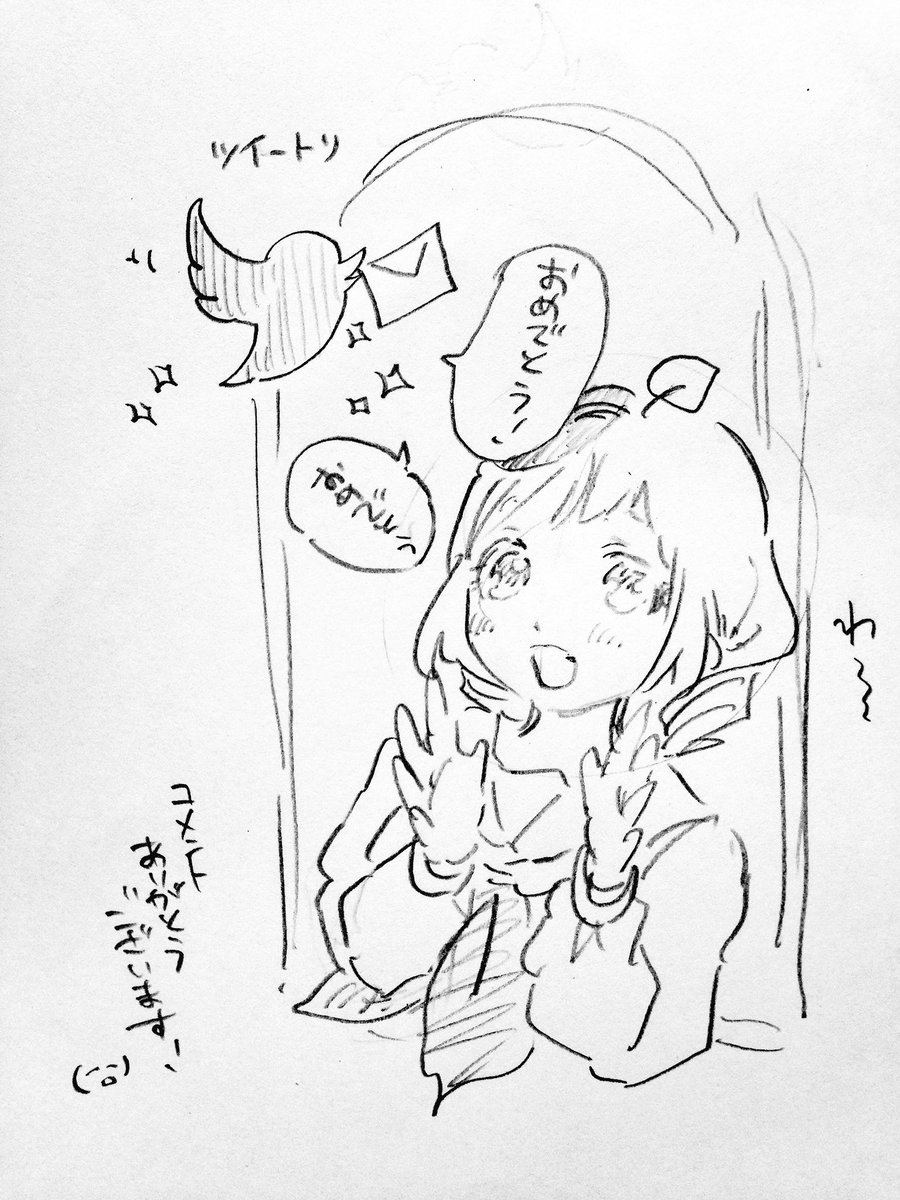 ツイートリ
おめでとう!
おめでとう
わ〜
コメント
ありがとう
ございます!